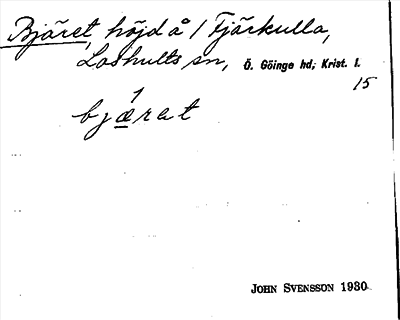 Bjäret, höjd å 1 Fjärkulla,
Loshults sn, Ö. Göinge hd; Krist. l.
15
1
bjæret
JOHN SVENSSON 1930.